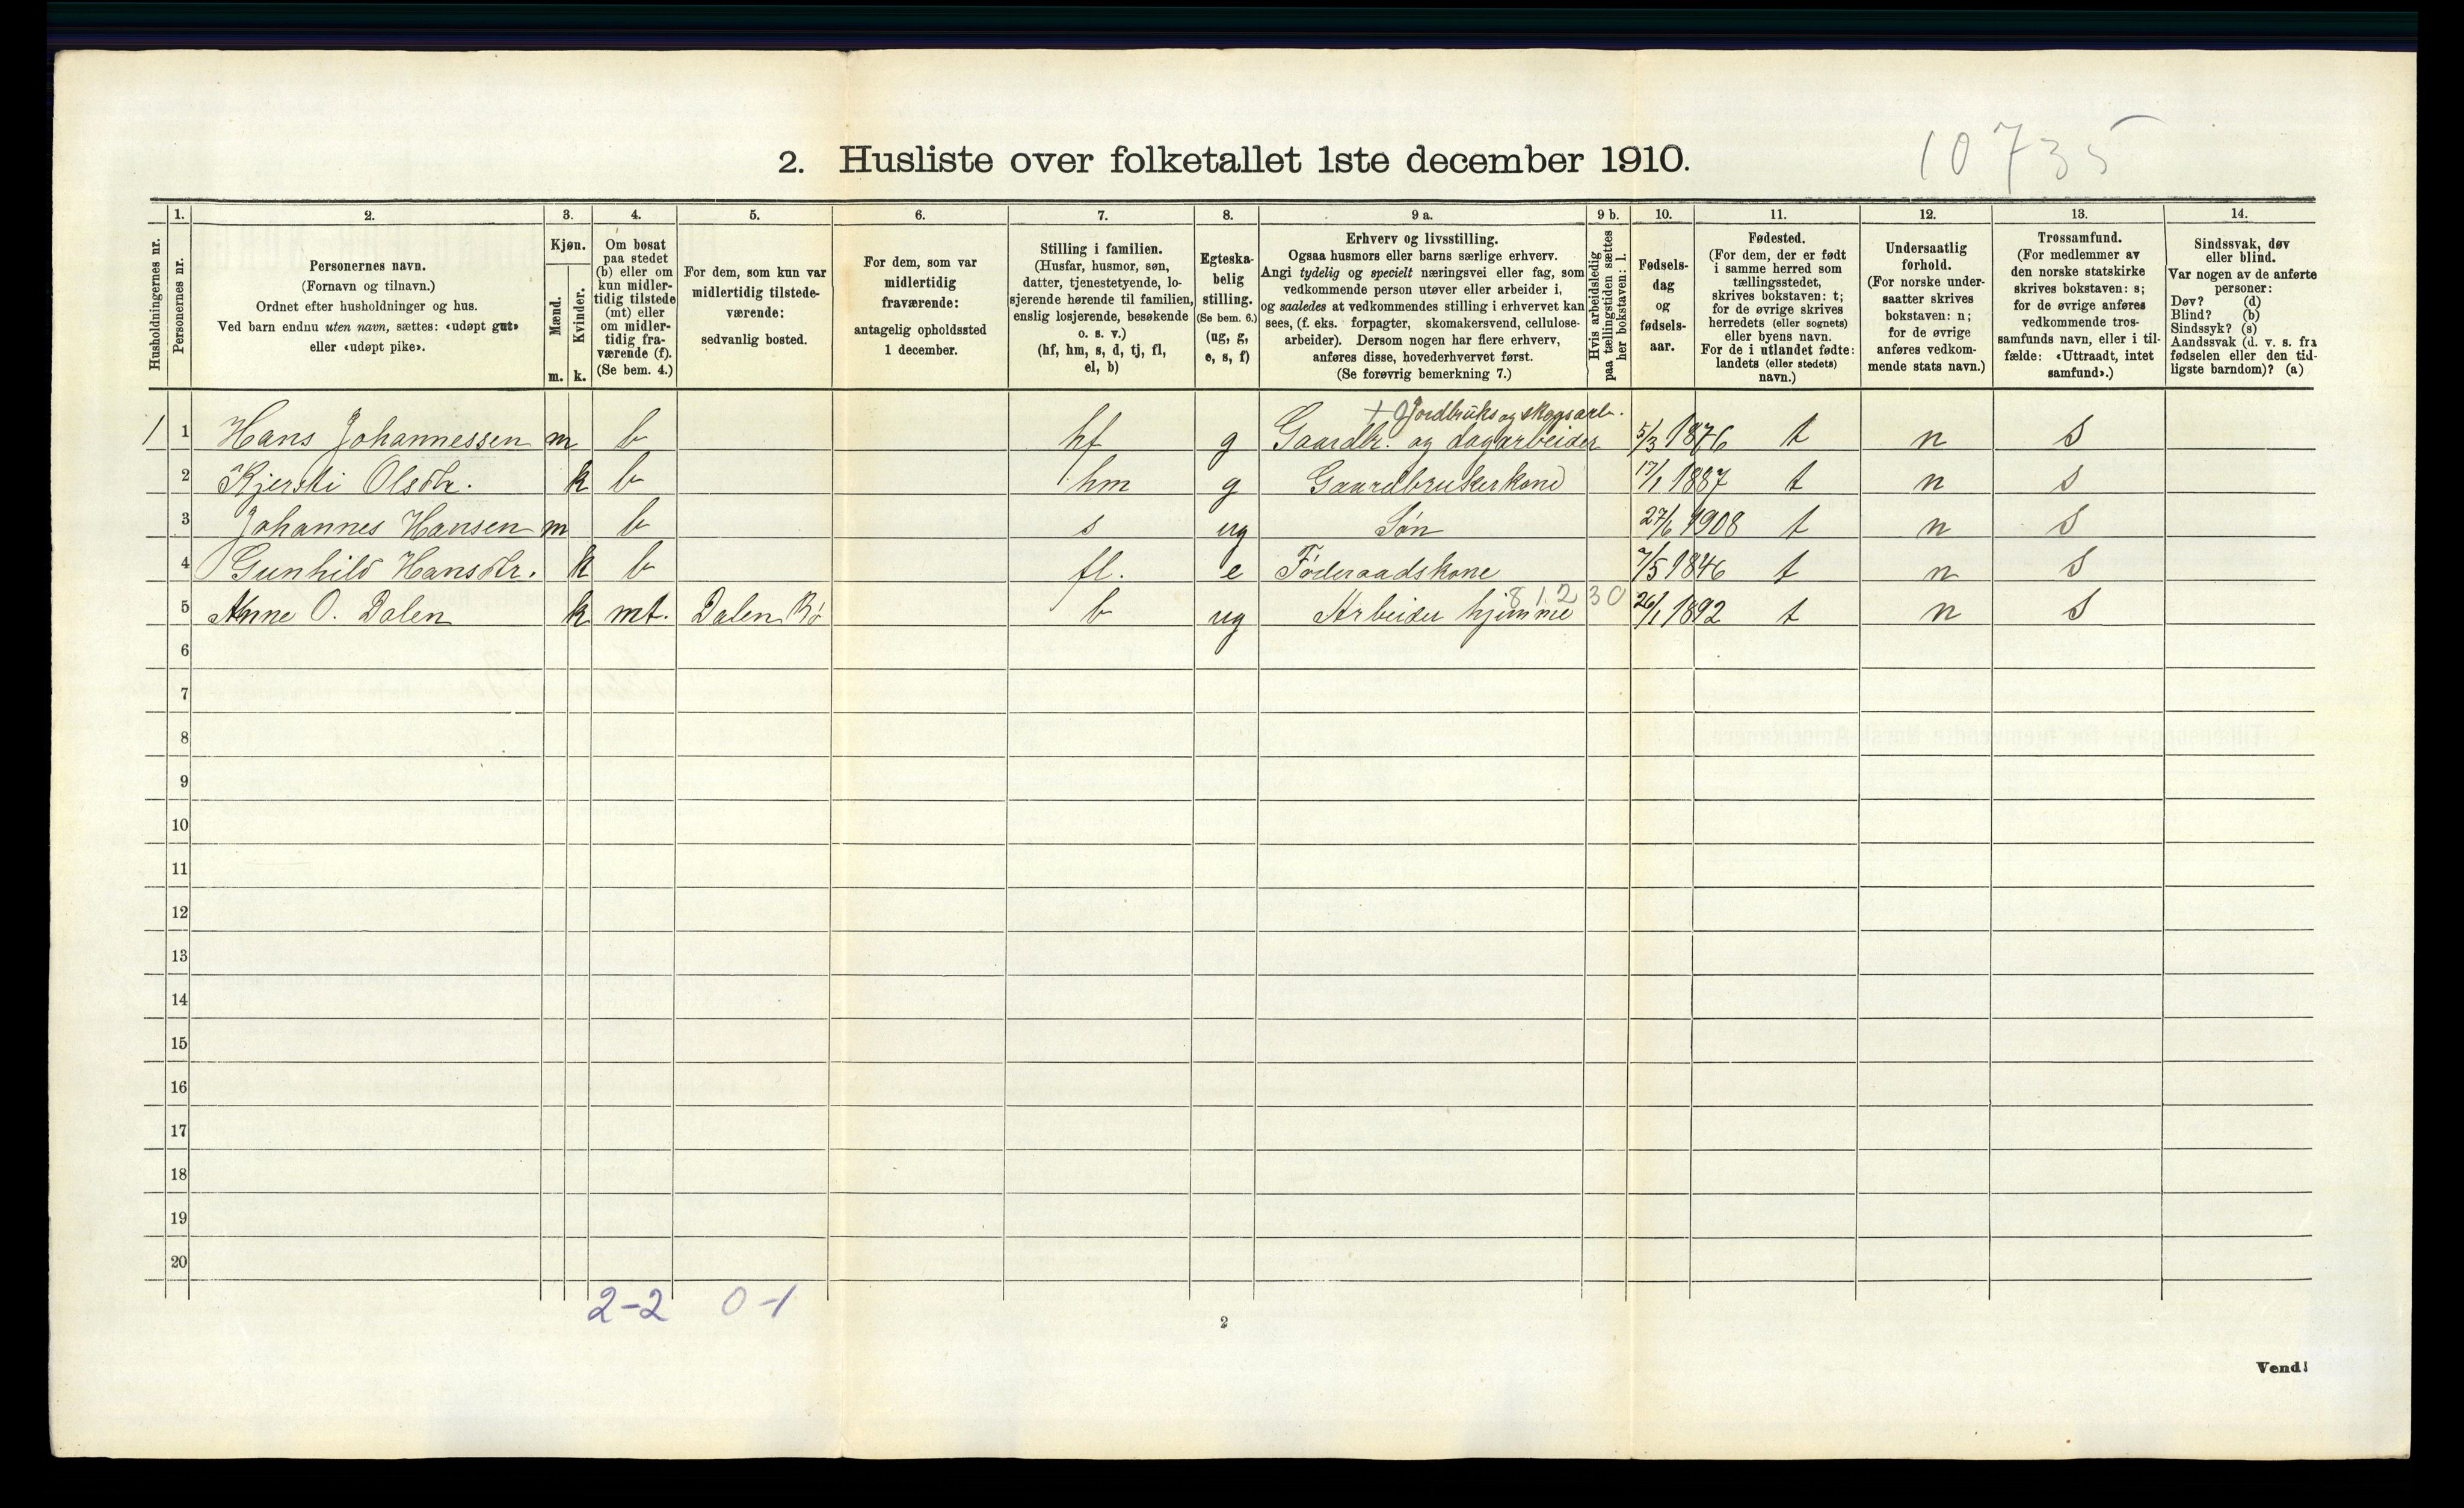 10735
2. Husliste over folketallet 1ste december 1910.
Husholdningernes nr.
1.
Personernes nr.
2.
Personernes navn.
(Fornavn og tilnavn.)
Ordnet efter husholdninger og hus.
Ved barn endnu uten navn, sættes: «udøpt gut»
eller «udøpt pike».
3.
Kjøn.
Mænd.
m.
Kvinder.
k.
4.
Om bosat
paa stedet
(b) eller om
kun midler-
tidig tilstede
(mt) eller
om midler-
tidig fra-
værende (f).
(Se bem. 4.)
5.
For dem, som kun var
midlertidig tilstede-
værende:
sedvanlig bosted.
6.
For dem, som var
midlertidig
fraværende:
antagelig opholdssted
1 december.
7.
Stilling i familien.
(Husfar, husmor, søn,
datter, tjenestetyende, lo-
sjerende hørende til familien,
enslig losjerende, besøkende
o. s. v.)
(hf, hm, s, d, tj, fl,
el, b)
8.
Egteska-
belig
stilling.
(Se bem. 6.)
(ug, g,
e, s, f)
9 a.
Erhverv og livsstilling.
Ogsaa husmors eller barns særlige erhverv.
Angi tydelig og specielt næringsvei eller fag, som
vedkommende person utøver eller arbeider i,
og saaledes at vedkommendes stilling i erhvervet kan
sees, (f. eks. forpagter, skomakersvend, cellulose-
arbeider). Dersom nogen har flere erhverv,
anføres disse, hovederhvervet først.
(Se forøvrig bemerkning 7.)
9 b.
Hvis arbeidsledig
paa tællingstiden sættes
her bokstaven: l.
10.
Fødsels-
dag
og
fødsels-
aar.
11.
Fødested.
(For dem, der er født
i samme herred som
tællingsstedet,
skrives bokstaven: t;
for de øvrige skrives
herredets (eller sognets)
eller byens navn.
For de i utlandet fødte:
landets (eller stedets)
navn.)
12.
Undersaatlig
forhold.
(For norske under-
saatter skrives
bokstaven: n;
for de øvrige
anføres vedkom-
mende stats navn.)
13.
Trossamfund.
(For medlemmer av
den norske statskirke
skrives bokstaven: s;
for de øvrige anføres
vedkommende tros-
samfunds navn, eller i til-
fælde: «Uttraadt, intet
samfund».)
14.
Sindssvak, døv
eller blind.
Var nogen av de anførte
personer:
Døv? (d)
Blind? (b)
Sindssyk? (s)
Aandssvak (d. v. s. fra
fødselen eller den tid-
ligste barndom)? (a)
+ Jordbruks og skogsarb.
1 1 Hans Johannessen m b hf g Gaardbr. og dagarbeider 5/3 1876 t n S
2 Kjersti Olsdtr. k b hm g Gaardbrukerkone 17/1 1887 t n S
3 Johannes Hansen m b s ug Søn 27/6 1908 t n S
4 Gunhild Hansdtr. k b fl. e Føderaadskone 7/5 1846 t n S
5 Anne O. Dalen k mt. Dalen, Bø b ug Arbeider hjemme 81230 26/1 1892 t n S
6
7
8
9
10
11
12
13
14
15
16
17
18
19
20
2-2 0-1
2
Vend!